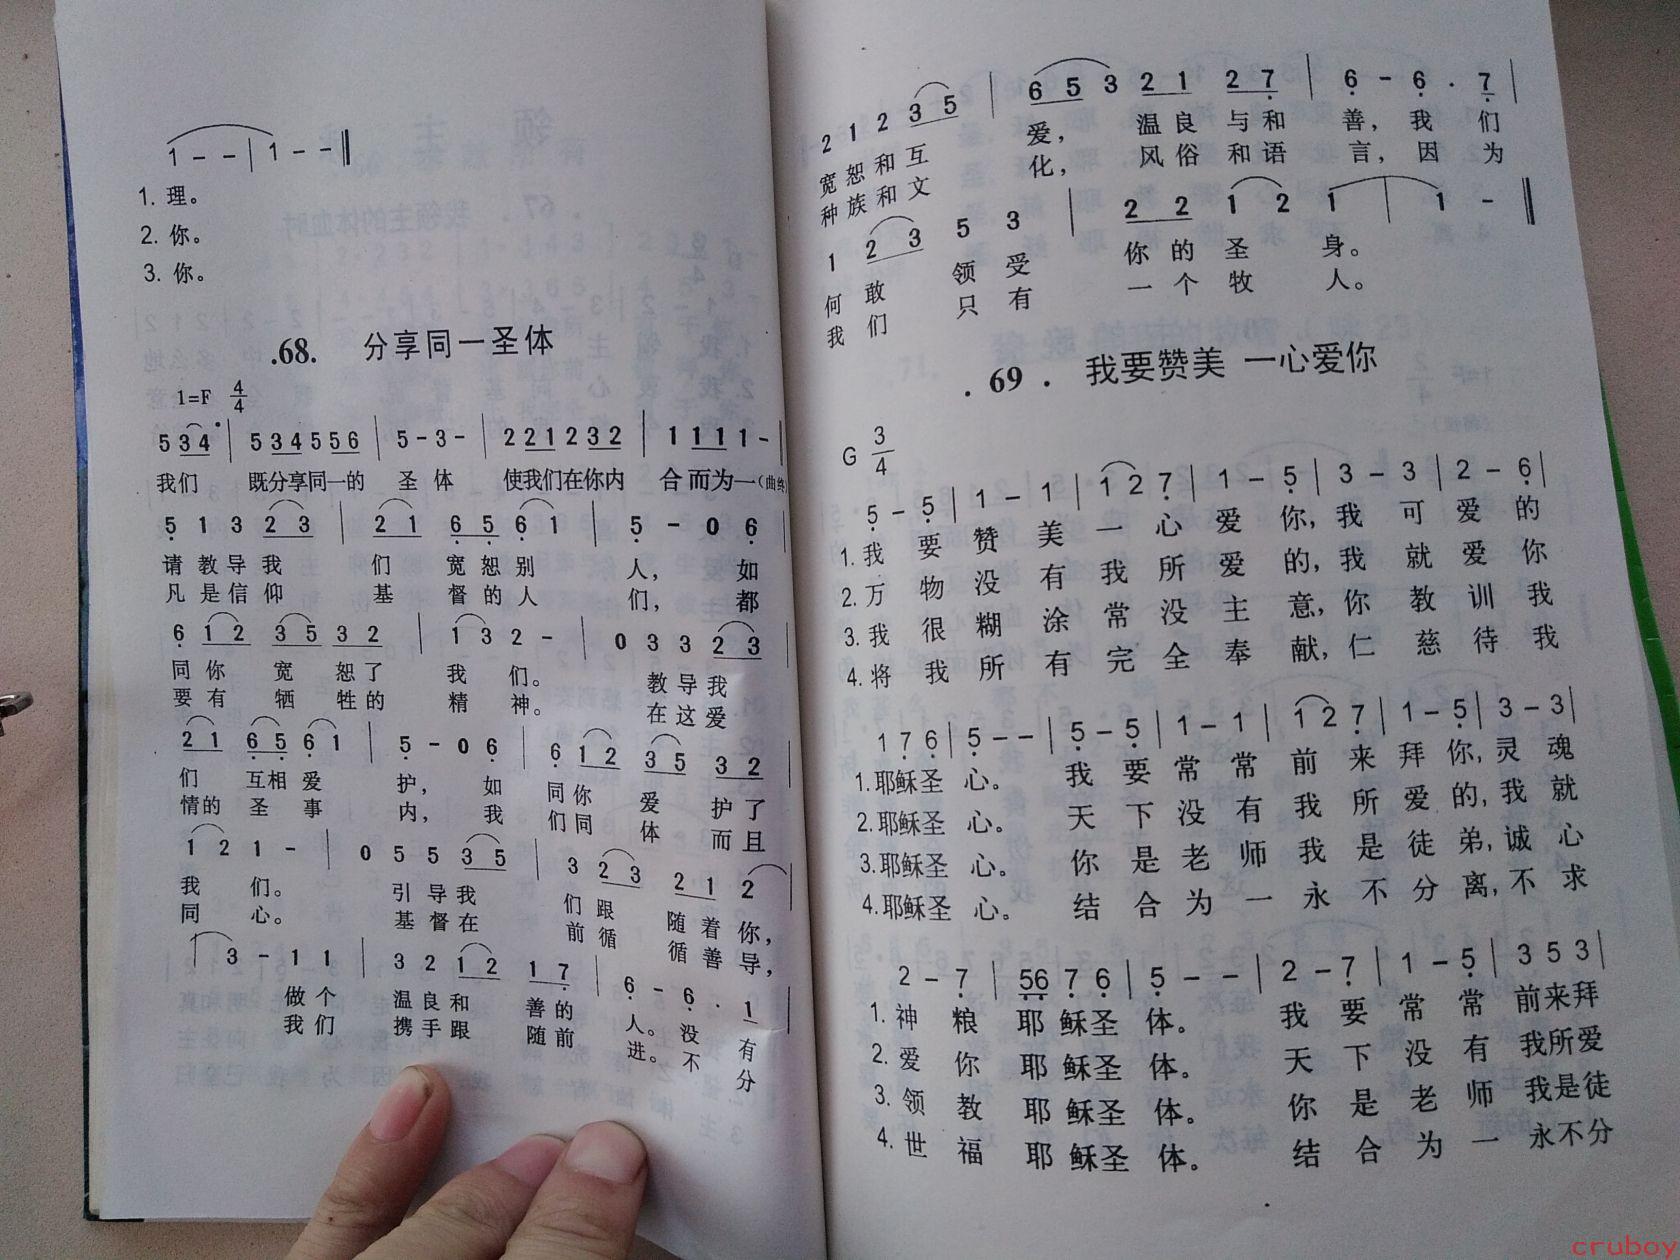 1 - - | 1 - - ‖
1. 理。
2. 你。
3. 你。
.68. 分享同一圣体
1=F 4/4
5 3 4 | 5 3 4 5 5 6 | 5 - 3 - | 2 2 1 2 3 2 | 1 1 1 1 - |
我们 既分享同一的 圣 体 使我们在你内 合而为一(曲终)
5 1 3 2 3 | 2 1 6 5 6 1 | 5 - 0 6 |
请 教 导 我 们 宽 恕 别 人, 如
凡 是 信 仰 基 督 的 人 们, 都
6 1 2 3 5 3 2 | 1 3 2 - | 0 3 3 2 3 |
同 你 宽 恕 了 我 们。 教 导 我
要 有 牺 牲 的 精 神。 在 这 爱
2 1 6 5 6 1 | 5 - 0 6 | 6 1 2 3 5 3 2
们 互相 爱 护, 如 同 你 爱 护 了
情的 圣 事 内, 我 们 同 体 而 且
1 2 1 - | 0 5 5 3 5 | 3 2 3 2 1 2 |
我 们。 引 导 我 们 跟 随 着 你,
同 心。 基 督 在 前 循 循 善 导,
3 - 1 1 | 3 2 1 2 1 7 | 6 - 6 · 1 |
做 个 温 良 和 善 的 人。 没 有
我 们 携 手 跟 随 前 进。 不 分
2 1 2 3 5 | 6 5 3 2 1 2 7 | 6 - 6 . 7 |
宽 恕 和 互 爱, 温 良 与 和 善, 我 们
种 族 和 文 化, 风 俗 和 语 言, 因 为
1 2 3 5 3 | 2 2 1 2 1 | 1 - ‖
何 敢 领 受 你 的 圣 身。
我 们 只 有 一 个 牧 人。
. 69 . 我要赞美 一心爱你
G 3/4
5 - 5 | 1 - 1 | 1 2 7 | 1 - 5 | 3 - 3 | 2 - 6 |
1. 我 要 赞 美 一 心 爱 你, 我 可 爱 的
2. 万 物 没 有 我 所 爱 的, 我 就 爱 你
3. 我 很 糊 涂 常 没 主 意, 你 教 训 我
4. 将 我 所 有 完 全 奉 献, 仁 慈 待 我
1 7 6 | 5 - - | 5 - 5 | 1 - 1 | 1 2 7 | 1 - 5 | 3 - 3 |
1. 耶稣圣 心。 我 要 常 常 前 来 拜 你, 灵 魂
2. 耶稣圣 心。 天 下 没 有 我 所 爱 的, 我 就
3. 耶稣圣 心。 你 是 老 师 我 是 徒 弟, 诚 心
4. 耶稣圣 心。 结 合 为 一 永 不 分 离, 不 求
2 - 7 | 5 6 7 6 | 5 - - | 2 - 7 | 1 - 5 | 3 5 3 |
1. 神 粮 耶 稣圣 体。 我 要 常 常 前来拜
2. 爱 你 耶 稣圣 体。 天 下 没 有 我所爱
3. 领 教 耶 稣圣 体。 你 是 老 师 我是徒
4. 世 福 耶 稣圣 体。 结 合 为 一 永不分
cruboy